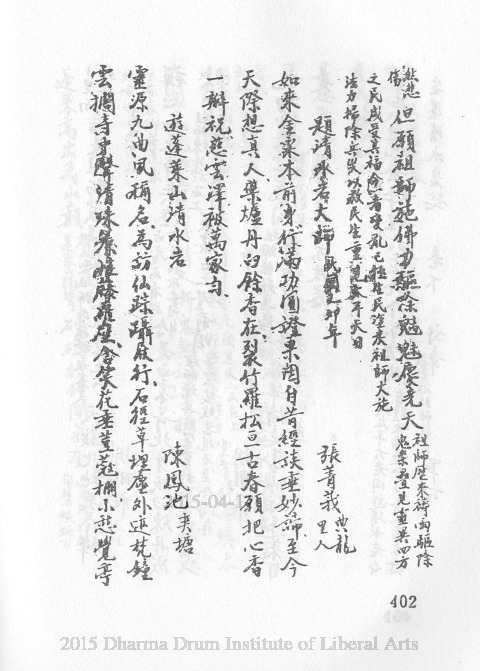 愁悲傷但願祖師施佛力驅除魑魅慶光天祖師歷來禱雨驅除鬼祟疊見靈異四方
之民咸受其福今者變亂已極生民塗炭祖師大施
法力掃除兵災以救民生重見昇平天日
題清水岩大歸民國 年 張菁莪典龍里人
如來金粟本前身行滿功圓證果因自昔經談垂妙諦至今
天際想真人藥爐丹臼餘香在裂竹羅松亘古春願把心香
一瓣祝慈雲澤被萬家勻
遊蓬萊山清水岩 陳鳳池 奕塘
靈源九曲夙稱名為訪仙踪躡屐行石徑草埋塵外迹梵鐘
雲擱寺 聲清 藤羅 含笑花垂荳蔻棚小憩覺亭
402
2015-04-1
2015 Dharma Drum Institute of Liberal Arts